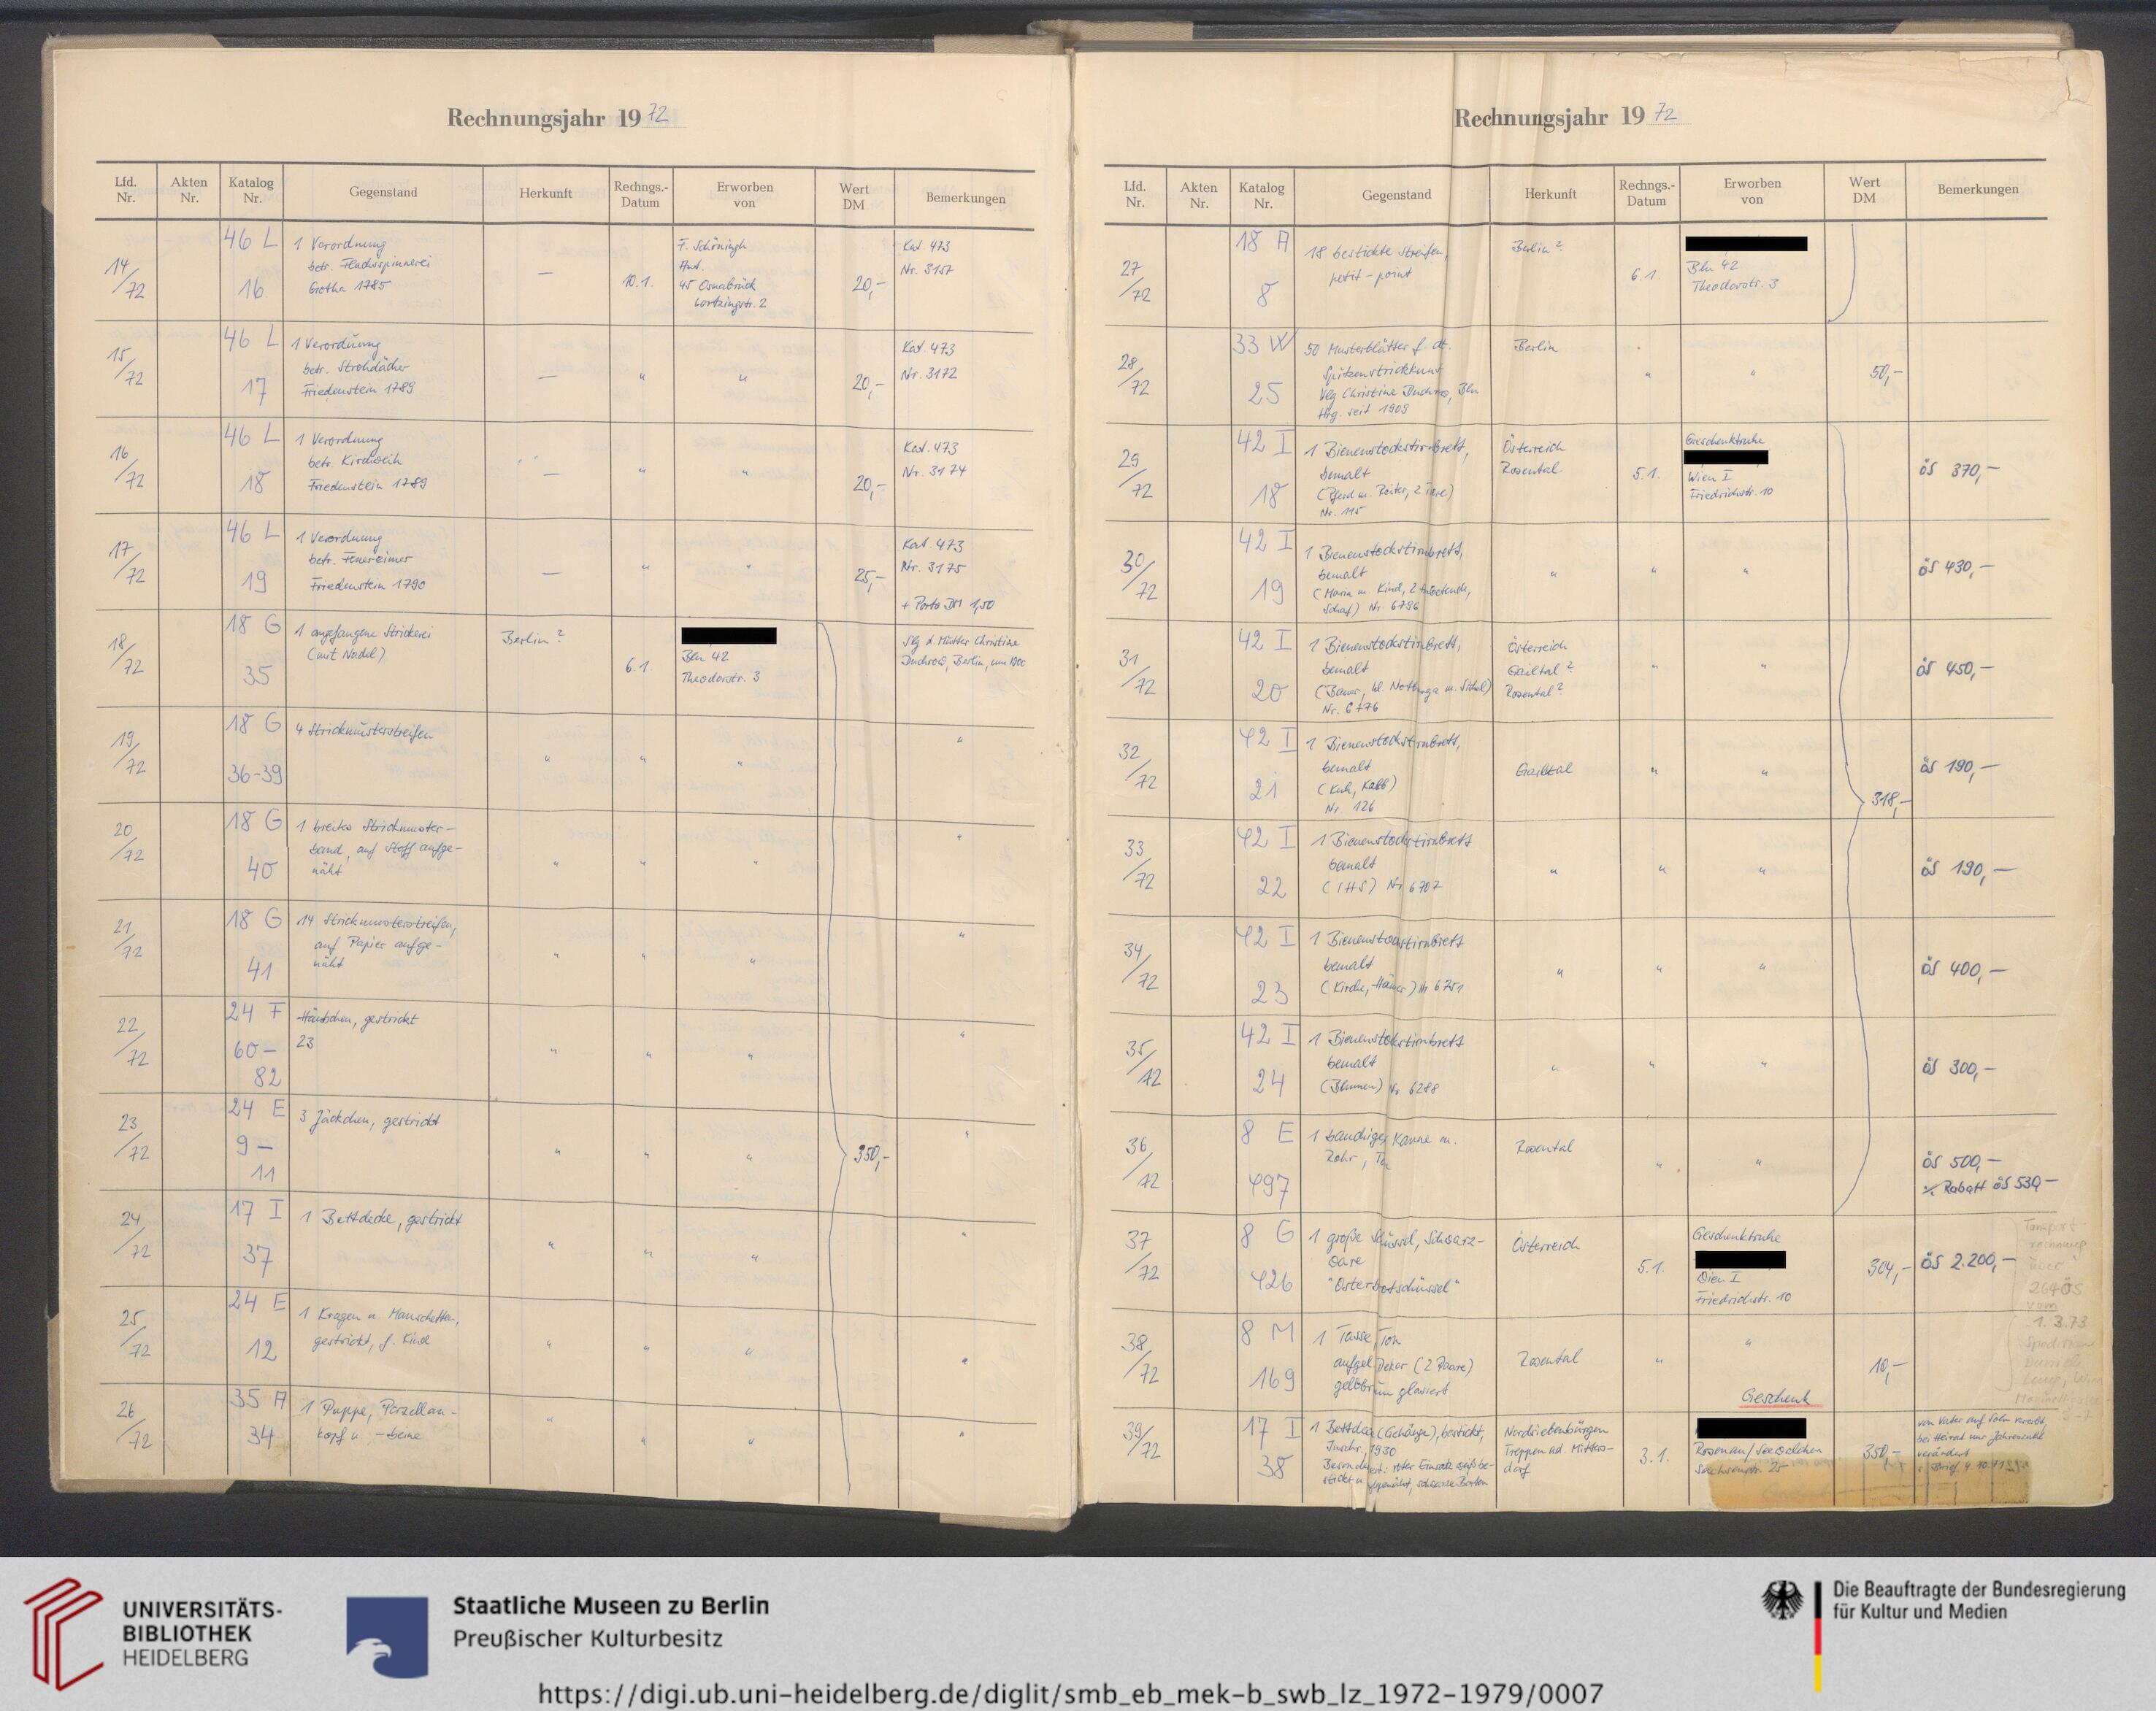 Rechnungsjahr 1972
Lfd. Nr. Akten Nr. Katalog Nr. Gegenstand Herkunft Rechngs.-Datum Erworben von Wert DM Bemerkungen
14/72 46 L 16
1 Verordnung
betr. Flachsspinnerei
Gotha 1785
—
10.1.
F. Schöningh
Ant.
45 Osnabrück
Lortzingstr. 2
20,-
Kat 473
Nr. 3157
15/72 46 L 17
1 Verordnung
betr. Strohdächer
Friedenstein 1789
— " " 20,-
Kat. 473
Nr. 3172
16/72 46 L 18
1 Verordnung
betr. Kirchweih
Friedenstein 1789
— " " 20,-
Kat. 473
Nr. 3174
17/72 46 L 19
1 Verordnung
betr. Feuereimer
Friedenstein 1790
— " " 25,-
Kat. 473
Nr. 3175
+ Porto DM 1,50
18/72 18 G 35
1 angefangene Strickerei
(mit Nadel)
Berlin?
6.1.
Bln 42
Theodorstr. 3
Slg d. Mutter Christine
Duchrow, Berlin, um 1900
19/72 18 G 36-39
4 Strickmusterstreifen
" " " "
20/72 18 G 40
1 breites Strickmuster-
band, auf Stoff aufge-
näht
" " " "
21/72 18 G 41
14 Strickmusterstreifen,
auf Papier aufge-
näht
" " " "
22/72 24 F 60-82
Häubchen, gestrickt
23
" " " "
23/72 24 E 9-11
3 Jäckchen, gestrickt
" " " 350,- "
24/72 17 I 37
1 Bettdecke, gestrickt
" " " "
25/72 24 E 12
1 Kragen u. Manschetten,
gestrickt, f. Kind
" " " "
26/72 35 A 34
1 Puppe, Porzellan-
kopf u. -beine
" " " "
Rechnungsjahr 1972
Lfd. Nr. Akten Nr. Katalog Nr. Gegenstand Herkunft Rechngs.-Datum Erworben von Wert DM Bemerkungen
27/72 18 A 8
18 bestickte Streifen,
petit-point
Berlin?
6.1.
Bln 42
Theodorstr. 3
28/72 33 W 25
50 Musterblätter f. dt.
Spitzenstrickkunst
Vlg Christine Duchrow, Bln
Hrg. seit 1909
Berlin
" " 50,-
29/72 42 I 18
1 Bienenstockstirnbrett,
bemalt
(Pferd m. Reiter, 2 Tiere)
Nr. 115
Österreich
Rosental
5.1.
Geschenktruhe
Wien I
Friedrichstr. 10
öS 370,—
30/72 42 I 19
1 Bienenstockstirnbrett,
bemalt
(Maria m. Kind, 2 Anbetende,
Schaf) Nr. 6796
" " "
öS 430,—
31/72 42 I 20
1 Bienenstockstirnbrett,
bemalt
(Bauer, hl. Notburga m. Sichel)
Nr. 6776
Österreich
Gailtal?
Rosental?
" "
öS 450,—
32/72 42 I 21
1 Bienenstockstirnbrett,
bemalt
(Kuh, Kalb)
Nr. 126
Gailtal
" "
318,-
öS 190,—
33/72 42 I 22
1 Bienenstockstirnbrett
bemalt
(IHS) Nr. 6702
" " "
öS 190,—
34/72 42 I 23
1 Bienenstockstirnbrett
bemalt
(Kirche, Häuser) Nr 6751
" " "
öS 400,—
35/72 42 I 24
1 Bienenstockstirnbrett
bemalt
(Blumen) Nr. 6288
" " "
öS 300,—
36/72 8 E 497
1 bauchige Kanne m.
Rohr, Ton
Rosental
" "
öS 500,—
Rabatt öS 530,—
37/72 8 G 426
1 große Schüssel, Schwarz-
ware
"Osterbrotschüssel"
Österreich
5.1.
Geschenktruhe
Wien I
Friedrichstr. 10
304,-
öS 2.200,—
Transport-
rechnung
über
2640 öS
vom
1.3.73
38/72 8 M 169
1 Tasse, Ton
aufgel. Dekor (2 Paare)
gelbbraun glasiert
Rosental
" "
10,-
Geschenk
39/72 17 I 38
1 Bettdecke (Gehänge), bestickt,
Inschr., 1930
Nordsiebenbürgen
Treppen
3.1.
Rosenau/Seewalchen
Sachsenstr. 25
350,-
von Vater auf Sohn vererbt,
bei Heirat nur Jahreszahl
verändert
UNIVERSITÄTS-
BIBLIOTHEK
HEIDELBERG
Staatliche Museen zu Berlin
Preußischer Kulturbesitz
Die Beauftragte der Bundesregierung
für Kultur und Medien
https://digi.ub.uni-heidelberg.de/diglit/smb_eb_mek-b_swb_lz_1972-1979/0007